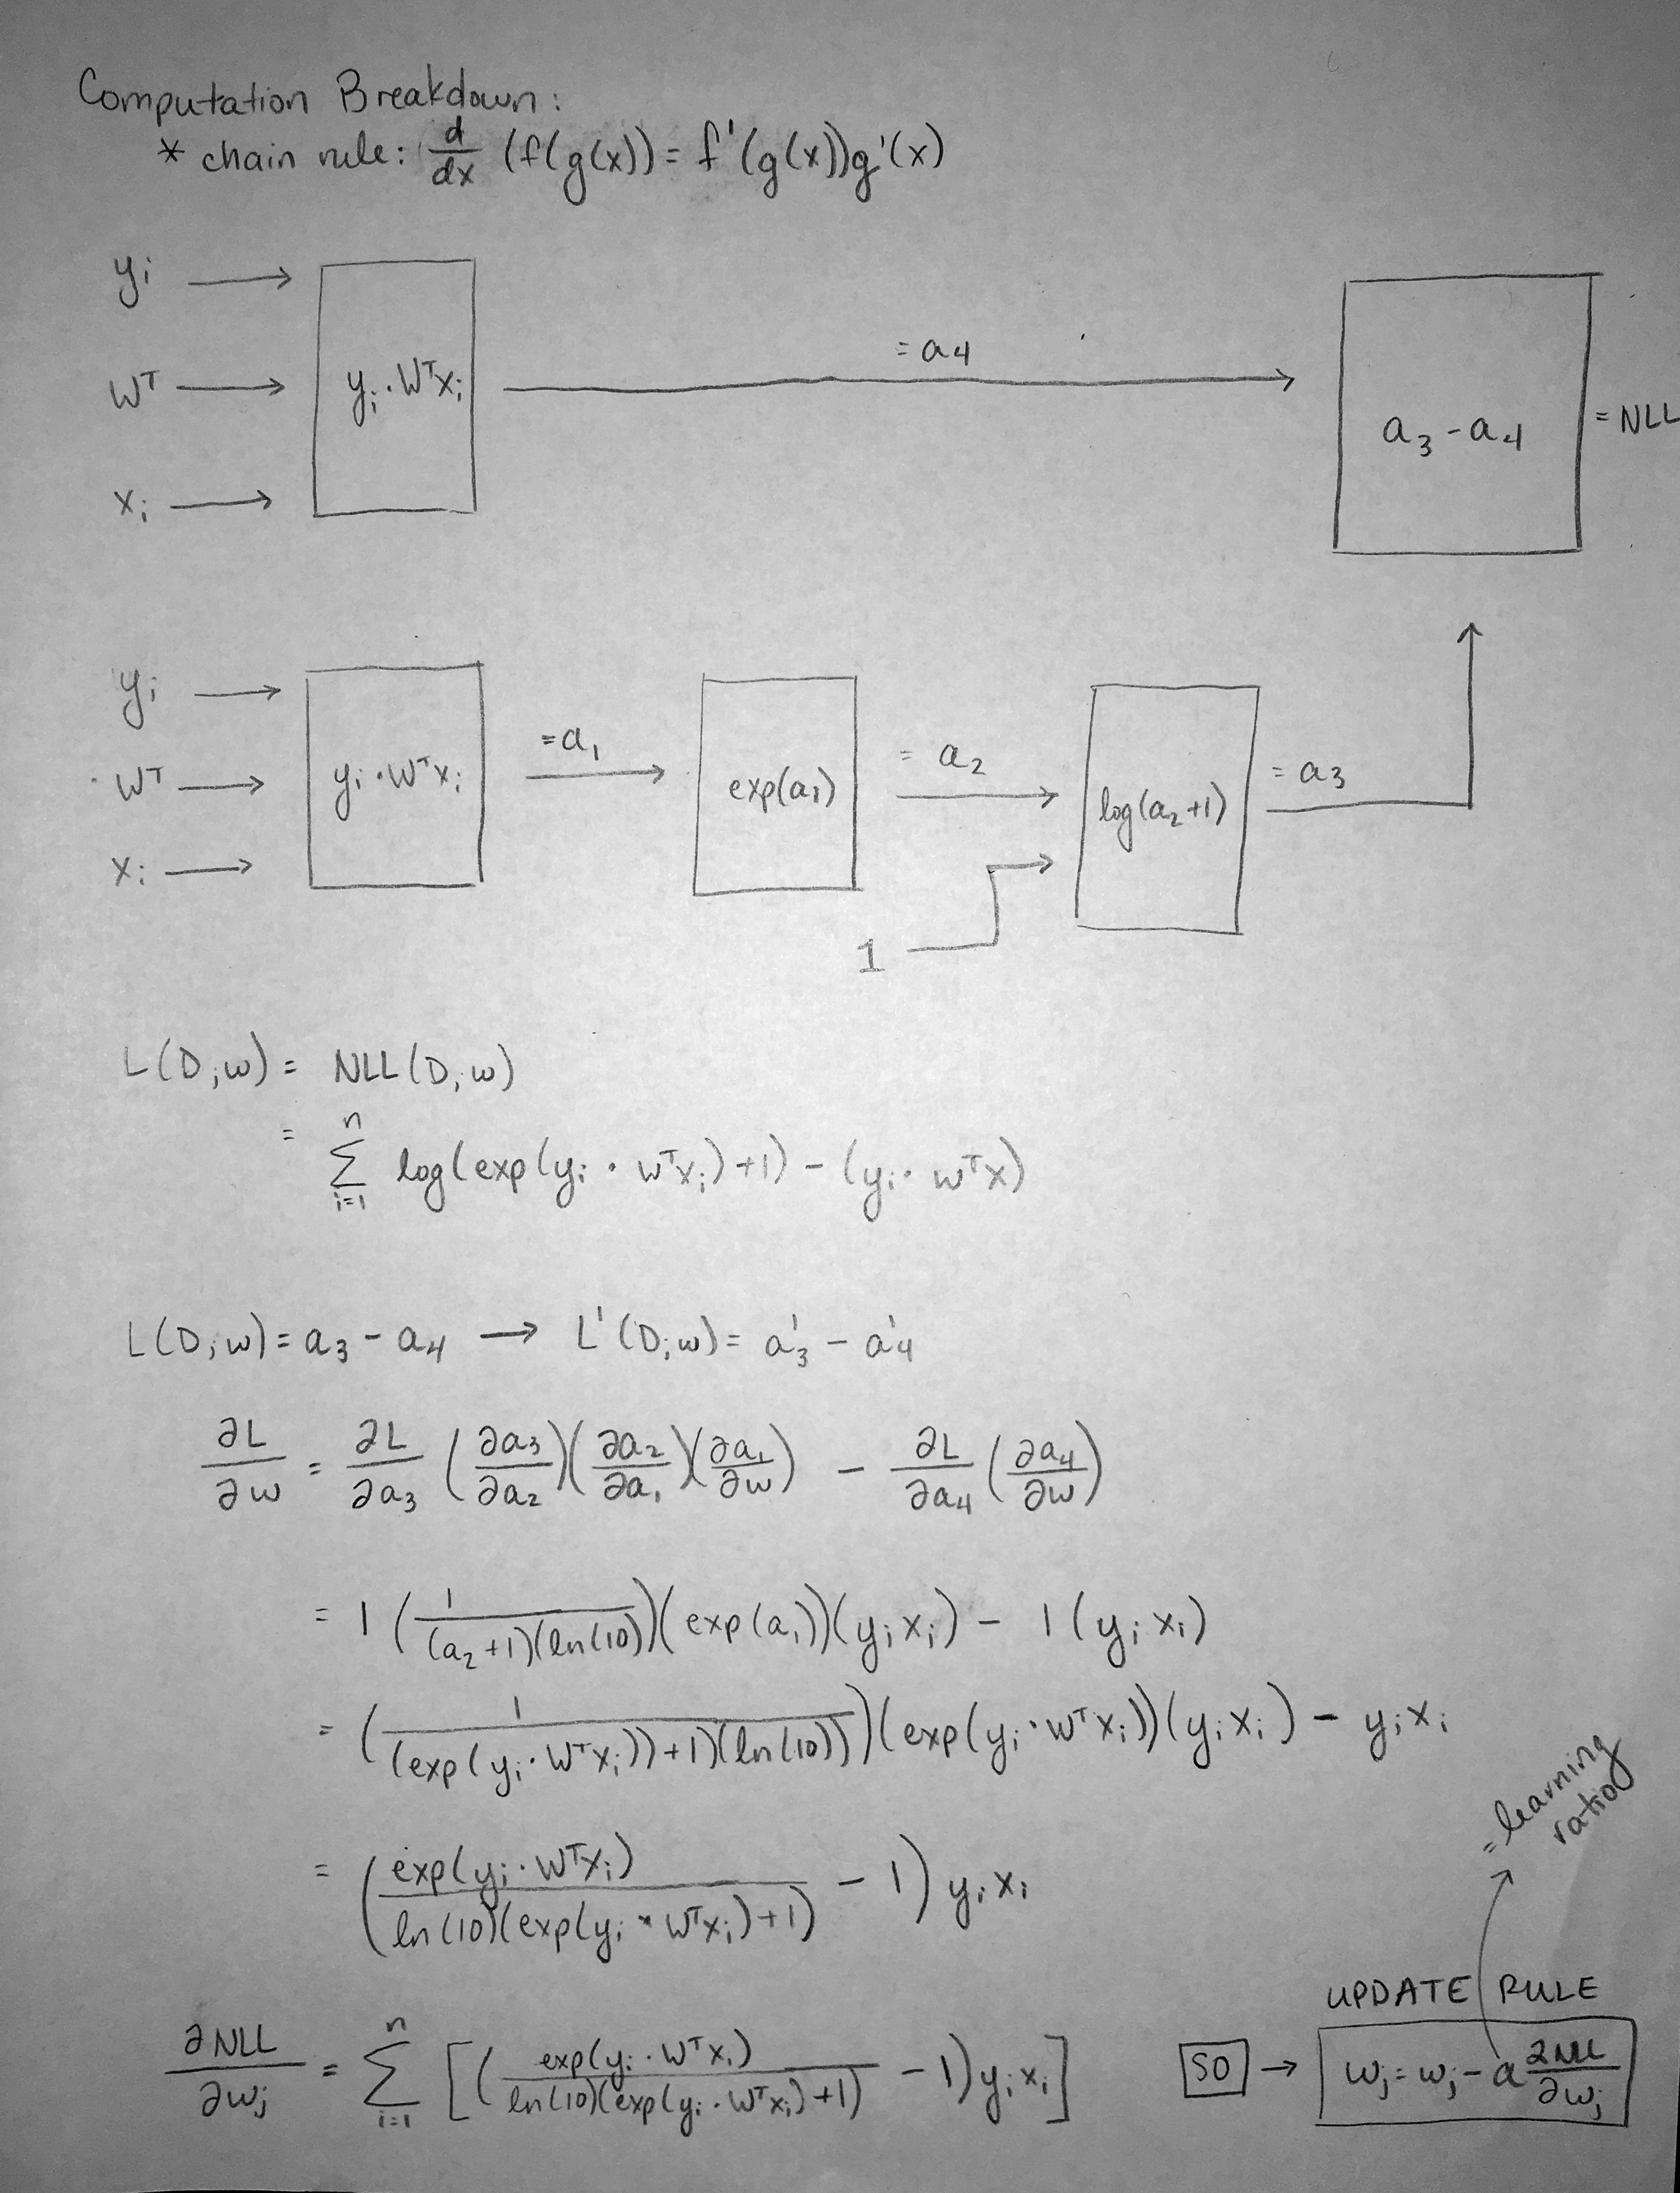 Computation Breakdown:
* chain rule: d/dx (f(g(x)) = f'(g(x))g'(x)
yi
Wᵀ
xi
yi · Wᵀxi
= a4
a3 - a4
= NLL
yi
Wᵀ
xi
yi · Wᵀxi
= a1
exp(a1)
= a2
1
log(a2+1)
= a3
L(D,w) = NLL(D,w)
= Σ i=1 n log(exp(yi · wᵀxi)+1) - (yi · wᵀx)
L(D,w) = a3 - a4 → L'(D,w) = a'3 - a'4
∂L/∂w = ∂L/∂a3 (∂a3/∂a2)(∂a2/∂a1)(∂a1/∂w) - ∂L/∂a4 (∂a4/∂w)
= 1 (1/(a2+1)(ln(10))(exp(a1))(yi xi) - 1(yi xi)
= (1/(exp(yi · Wᵀxi))+1)(ln(10)))(exp(yi · Wᵀxi))(yi xi) - yi xi
= learning ratio
= (exp(yi · Wᵀxi)/ln(10)(exp(yi · Wᵀxi)+1) - 1) yi xi
UPDATE RULE
∂NLL/∂wj = Σ i=1 n [(exp(yi · Wᵀxi)/ln(10)(exp(yi · Wᵀxi)+1) - 1) yi xi] SO → wj = wj - a ∂NLL/∂wj